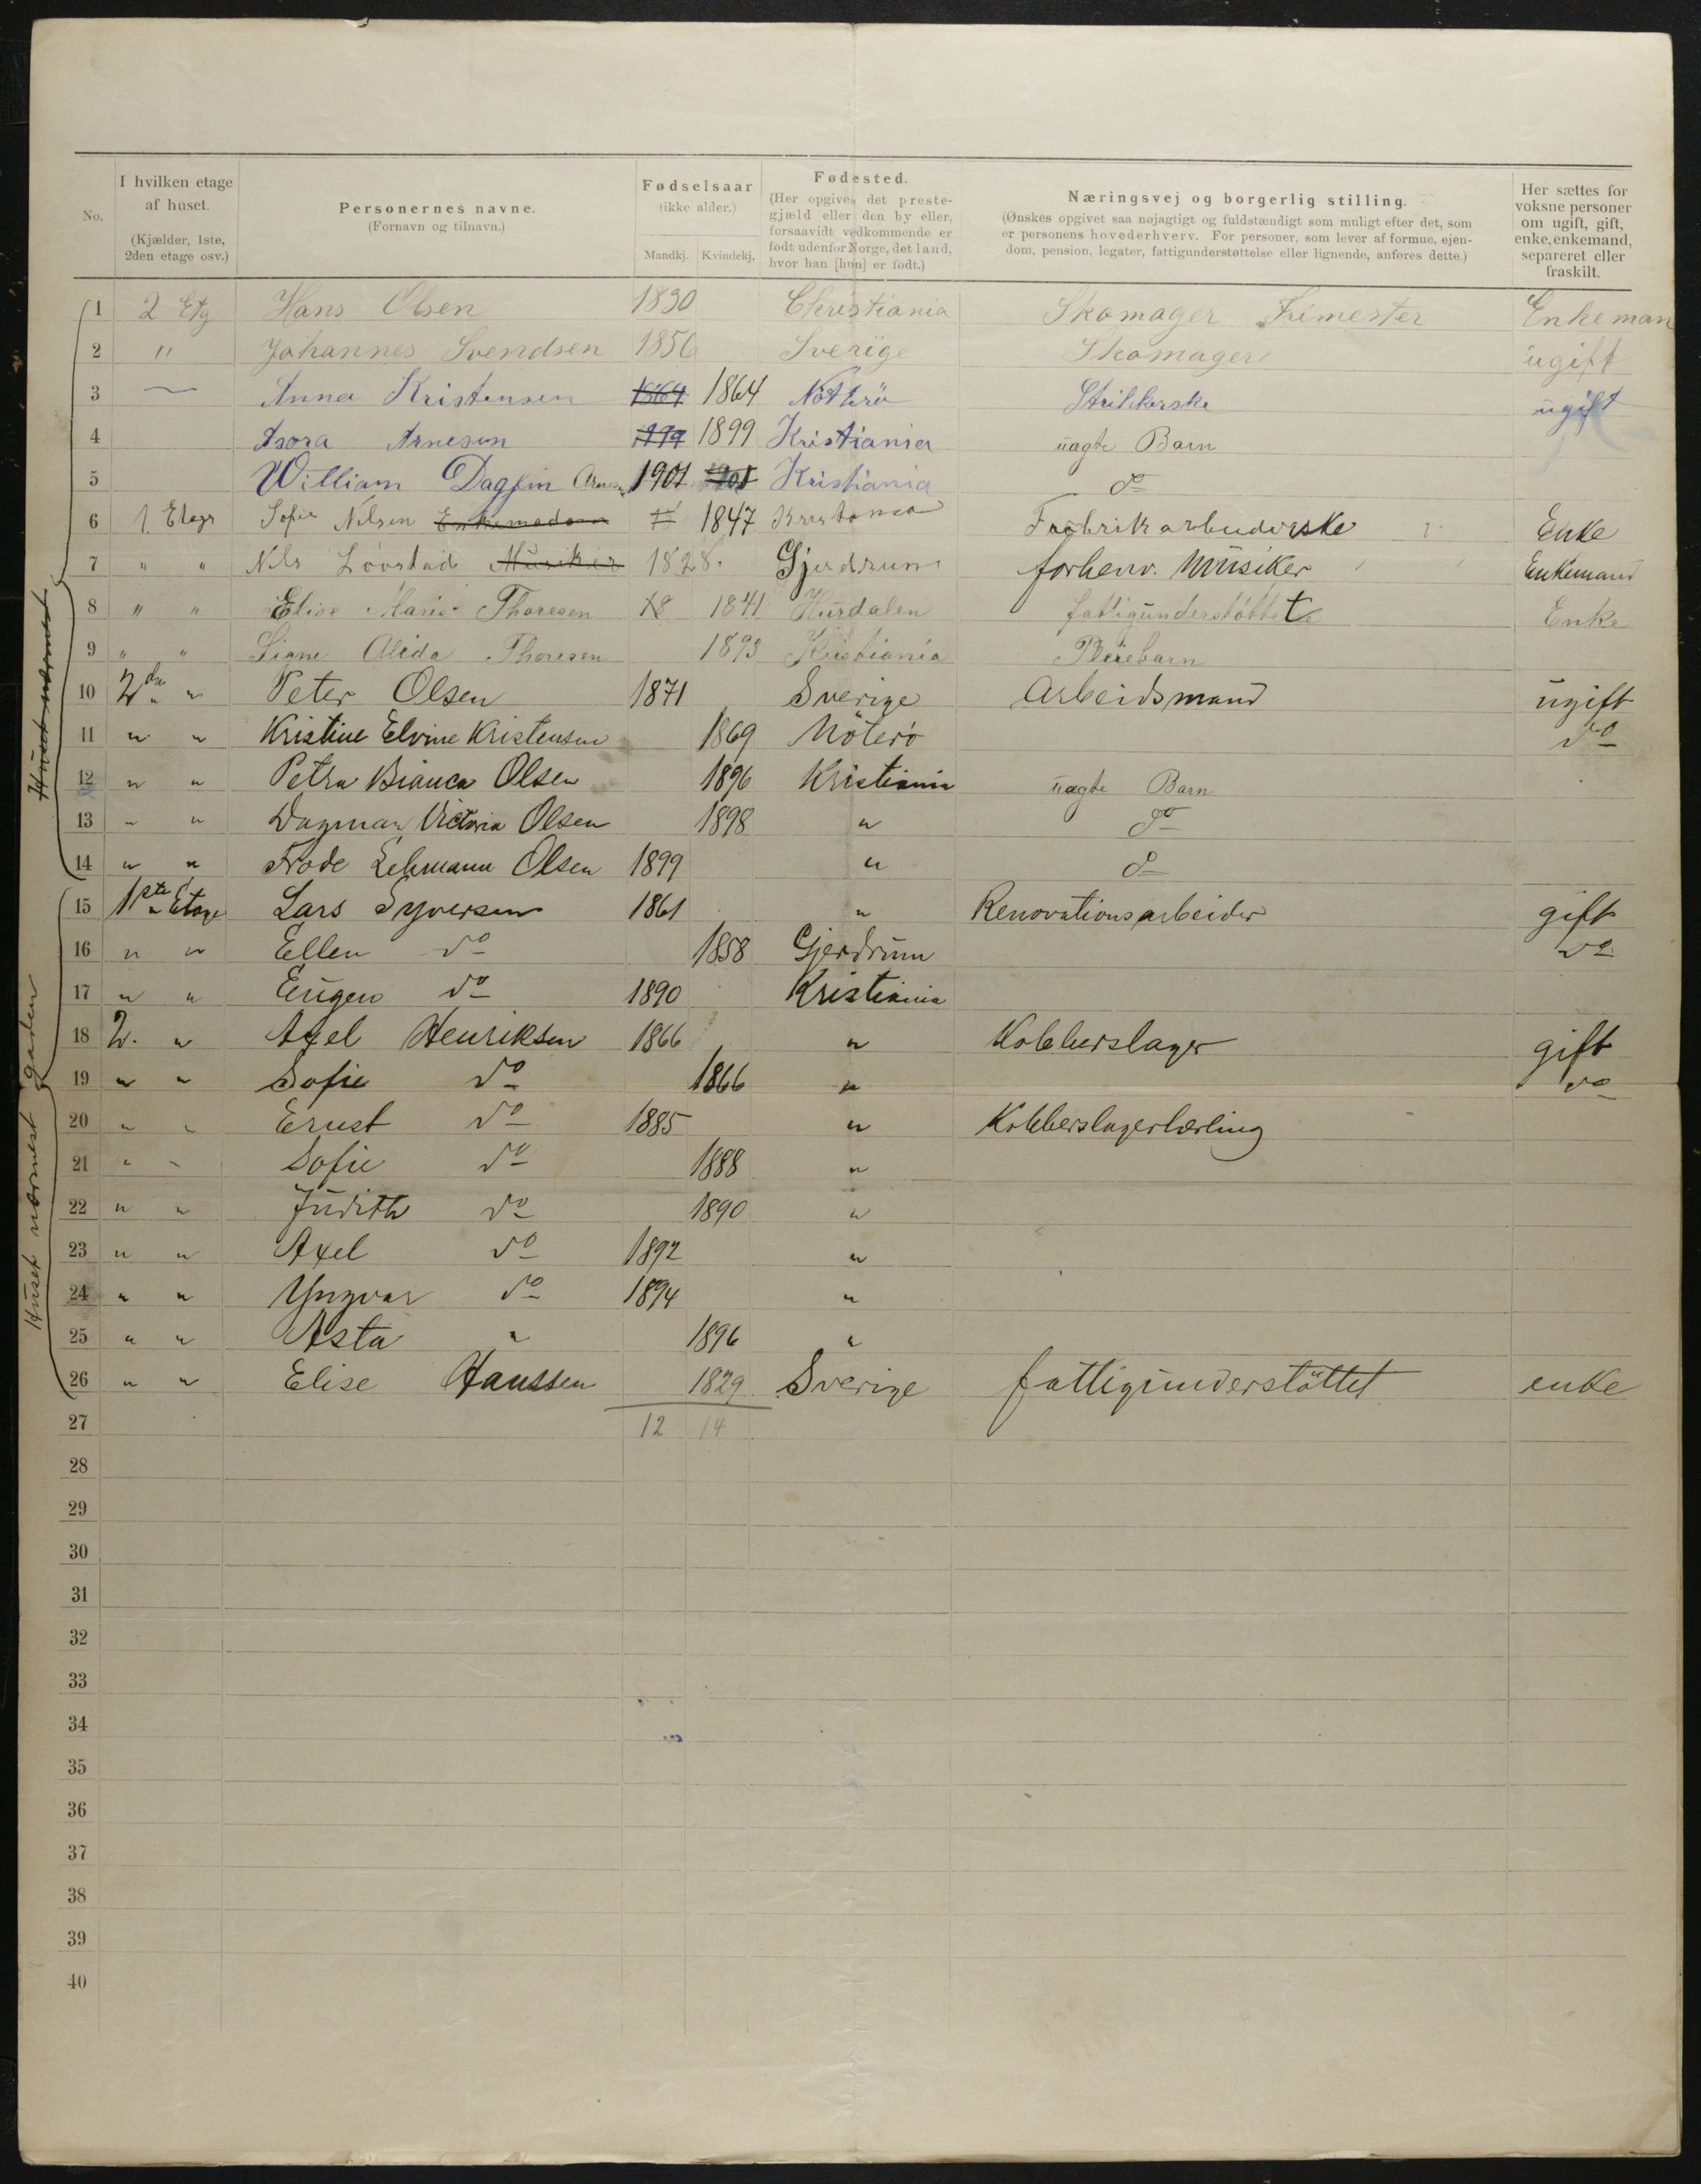 No. | I hvilken etage af huset. (Kjælder, 1ste, 2den etage osv.) | Personernes navne. (Fornavn og tilnavn.) | Fødselsaar (ikke alder.) Mandkj. Kvindekj. | Fødested. (Her opgives det prestegjæld eller den by eller, forsaavidt vedkommende er født udenfor Norge, det land, hvor han [hun] er født.) | Næringsvej og borgerlig stilling. (Ønskes opgivet saa nøjagtigt og fuldstændigt som muligt efter det, som er personens hovederhverv. For personer, som lever af formue, ejendom, pension, legater, fattigunderstøttelse eller lignende, anføres dette.) | Her sættes for voksne personer om ugift, gift, enke, enkemand, separeret eller fraskilt.
1 2 Etg Hans Olsen 1830 Christiania Skomager Enkeman
2 " Johannes Svendsen 1856 Sverige Skomager ugift
3 — Anna Kristensen 1864 1864 Nötterö Strikkerske ugift
4 Arnesen 1899 1899 Kristiania uægte Barn
5 William Dagfin Arnesen 1901 1901 Kristiania do
6 1 Etage Sofie Nilsen Enkemadam 1847 Kristania Fabrikarbeiderske Enke
7 " " Nils Lövstad Musiker 1828. Gjerdrum forhenv. Musiker Enkemand
8 " " Elise Marie Thoresen 18 1841 Hurdalen fattigunderstøttet Enke
9 " " Signe Alida Thoresen 1893 Kristiania Pleiebarn
10 2den " Peter Olsen 1871 Sverige Arbeidsmand ugift
11 " " Kristine Elvine Kristensen 1869 Nöterö do
12 " " Petra Bianca Olsen 1896 Kristiania uægte Barn
13 " " Dagmar Victoria Olsen 1898 " do
14 " " Frode Lehmann Olsen 1899 " do
15 1ste Etage Lars Syversen 1861 " Renovationsarbeider gift
16 " " Ellen do 1858 Gjerdrum do
17 " " Eugen do 1890 Kristiania
18 2. " Axel Henriksen 1866 " Kobberslager gift
19 " " Sofie do 1866 " do
20 " " Ernst do 1885 " Kobberslagerlærling
21 " " Sofie do 1888 "
22 " " Judith do 1890 "
23 " " Axel do 1892 "
24 " " Yngvar do 1894 "
25 " " Asta " 1896 "
26 " " Elise Hanssen 1829 Sverige fattigunderstöttet enke
27 12 14
28
29
30
31
32
33
34
35
36
37
38
39
40
Huset nærmest
Huset nærmest gaden